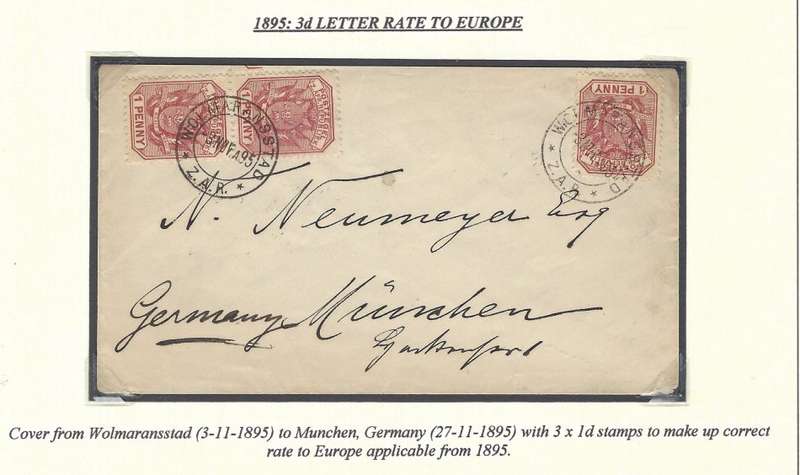 1895: 3d LETTER RATE TO EUROPE
1 PENNY
1 PENNY
1 PENNY
WOLMARANSSTAD
95
Z.A.R.
WOLMARANSSTAD
Z.A.R.
N. Neumeyer Esq
Germany München
Cover from Wolmaransstad (3-11-1895) to Munchen, Germany (27-11-1895) with 3 x 1d stamps to make up correct
rate to Europe applicable from 1895.